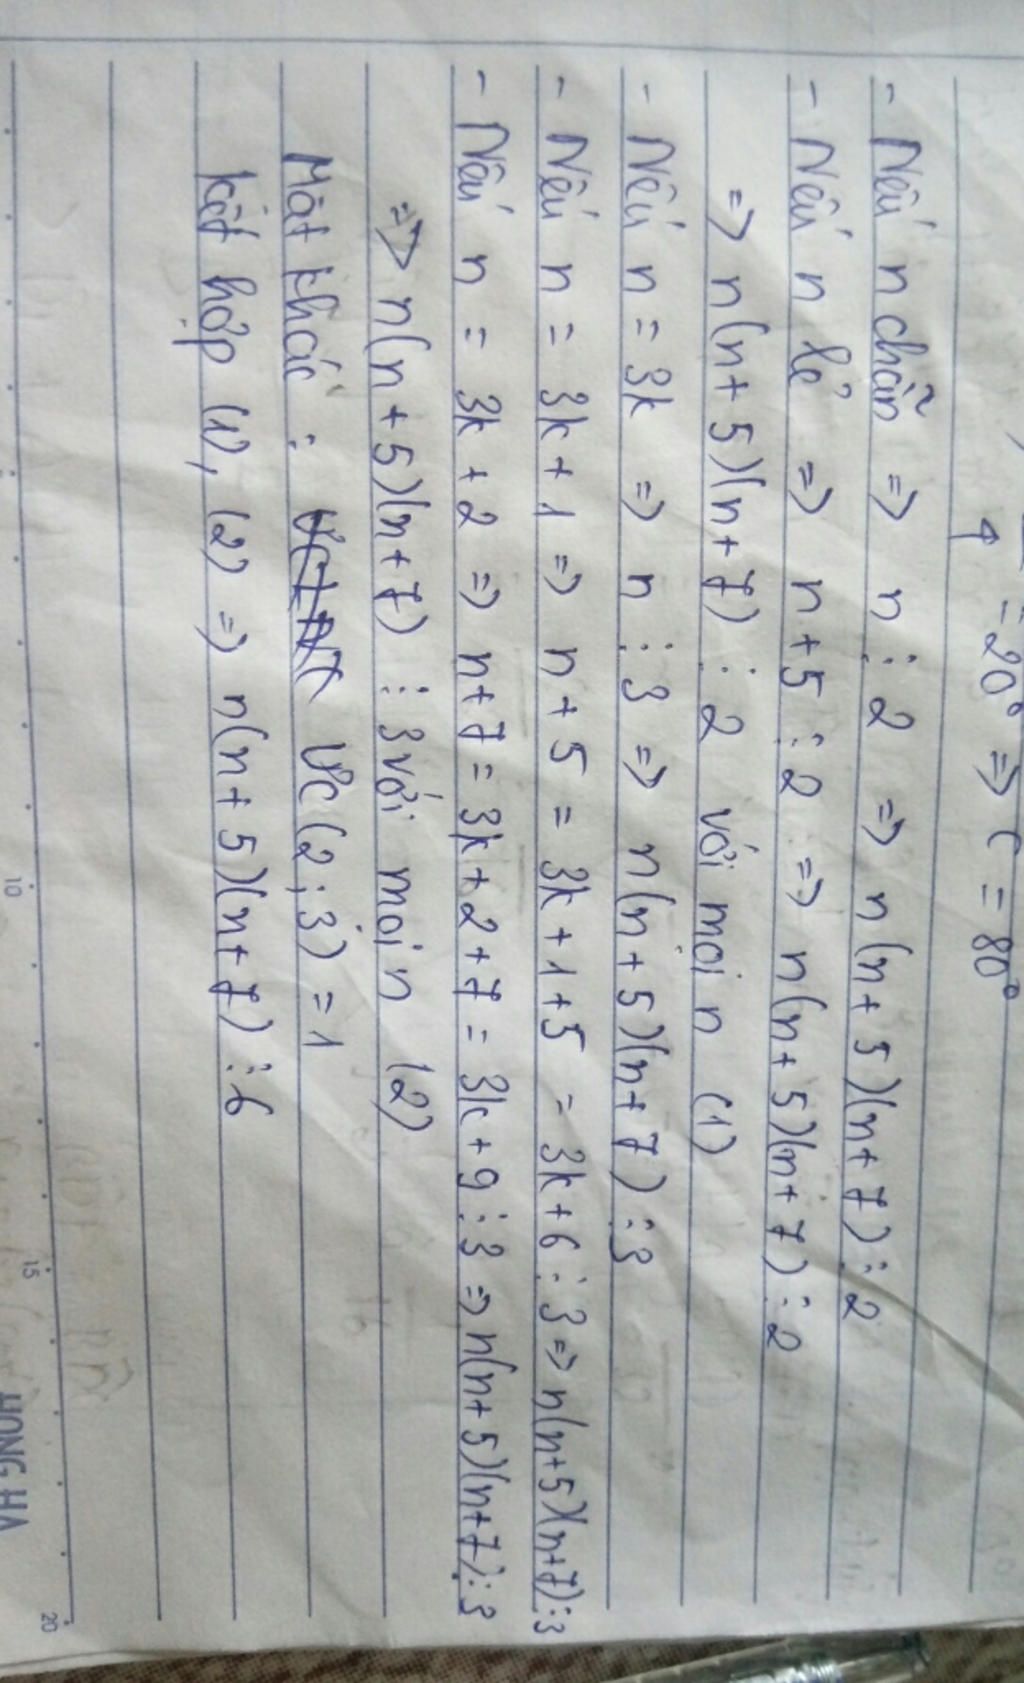 = 20° => C = 80°
4
- Nếu n chẵn => n ⋮ 2 => n(n+5)(n+7) ⋮ 2
- Nếu n lẻ => n+5 ⋮ 2 => n(n+5)(n+7) ⋮ 2
=> n(n+5)(n+7) ⋮ 2 với mọi n (1)
- Nếu n = 3k => n ⋮ 3 => n(n+5)(n+7) ⋮ 3
- Nếu n = 3k+1 => n+5 = 3k+1+5 = 3k+6 ⋮ 3 => n(n+5)(n+7) ⋮ 3
- Nếu n = 3k+2 => n+7 = 3k+2+7 = 3k+9 ⋮ 3 => n(n+5)(n+7) ⋮ 3
=> n(n+5)(n+7) ⋮ 3 với mọi n (2)
Mặt khác : ƯC(2;3) = 1
Kết hợp (1), (2) => n(n+5)(n+7) ⋮ 6
10
15
20
HONG HA